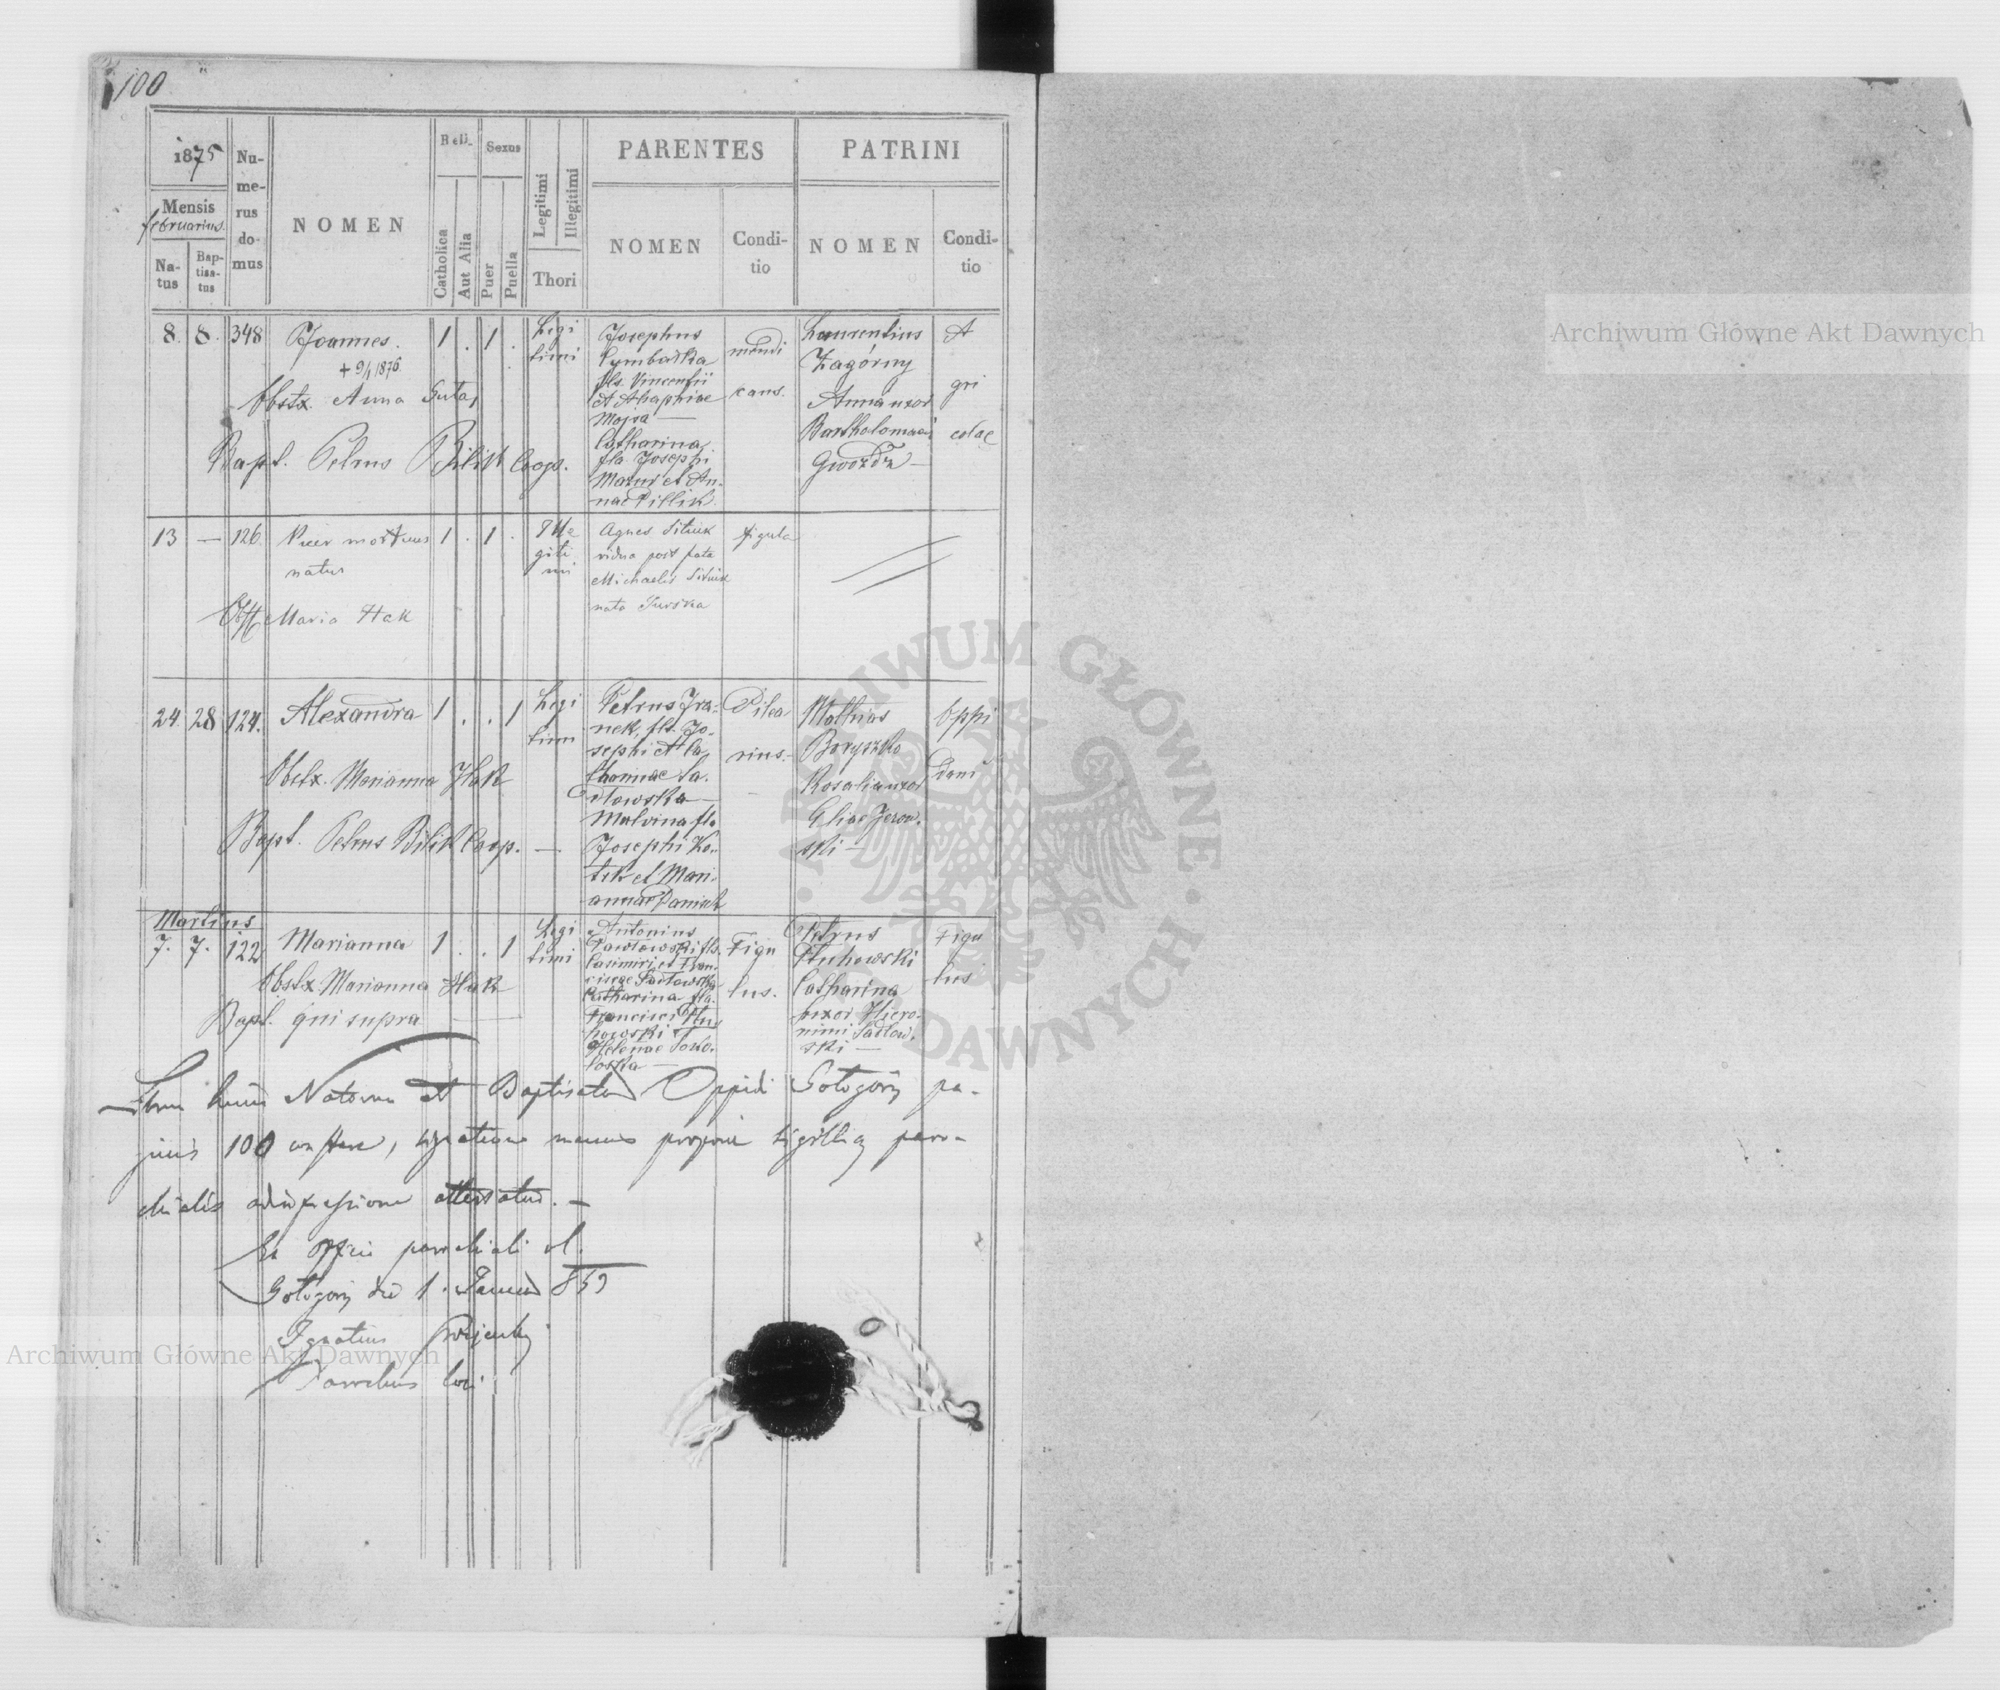 100
1875
Mensis
februarius.
Na-
tus
Bap-
tisa-
tus
Nu-
me-
rus
do-
mus
NOMEN
Reli-
Catholica
Aut Alia
Sexus
Puer
Puella
Legitimi
Illegitimi
Thori
PARENTES
NOMEN
Condi-
tio
PATRINI
NOMEN
Condi-
tio
8. 8. 348 Joannes. 1 . 1 . Legi
timi
+ 9/1 1876
Obstx. Anna Guta,
Bapt. Petrus Bilik Coop.
Josephus
Cymbalka
fls. Vincentii
et Ahaphiae
Mojsa —
Catharina
fla. Josephi
Mazur et An-
nae Pillik.
mendi
cans.
Laurentius
Zagórny
Anna uxor
Bartholomaei
Gwozdz —
A
gri
colae
13 — 126 Puer mortuus 1 . 1 . Ille
giti
mi
natus
Obst Maria Hak
Agnes Sitnik
vidua post fata
Michaelis Sitnik
nata Turska
figula
24. 28 124. Alexandra 1 . . 1 Legi
timi
Obstx. Marianna Hak
Bapt. Petrus Bilik Coop. —
Petrus Fra-
nek, fls. Jo-
sephi et Ca-
tharinae Sa-
dlowska —
Malvina fla
Josephi Ko-
tik et Mari-
annae Daniek
Pilea
rius.
Mathias
Boryszko
Rosalia uxor
Eliae Jerow-
ski —
Oppi
dani
Martius
7. 7. 122 Marianna 1 . . 1 Legi
timi
Obstx. Marianna Hak
Bapt. qui supra
Antonius
Pawlowski fls.
Casimiri et Fran-
ciscae Sadlowska
Catharina fla.
Francisci Ptu
howski
Helenae Soko-
loska —
Figu
lus.
Petrus
Ptuhowski
Catharina
uxor Hiero-
nimi Sadlow-
ski —
Figu
lus
Librum hunc Natorum et Baptisatorum Oppidi Gołogóry pa-
ginis 100 constare, manus propriae sigillique paro-
chialis adimpressione attestatur. —
Ex officio parochiali r. l.
Gołogóry die 1. 859
Ignatius
Parochus loci
Archiwum Główne Akt Dawnych
ARCHIWUM GŁÓWNE AKT DAWNYCH
Archiwum Główne Akt Dawnych